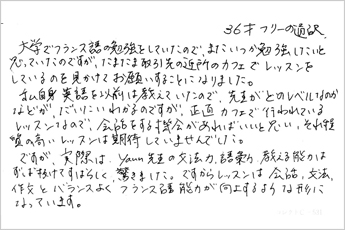 36才 フリーの通訳
大学でフランス語の勉強をしていたので、またいつか勉強したいと
思っていたのですが、たまたま取引先の近所のカフェでレッスンを
しているのを見かけてお願いすることになりました。
私自身 英語を以前は教えていたので、先生がどのレベルなのか
などが、だいたいわかるのですが、正直 カフェで行われている
レッスンなので、会話をする機会があればいいと思い、それ程
質の高いレッスンは期待していませんでした。
ですが、実際は、Yann先生の文法力、語彙力 教える能力は
ずば抜けてすばらしく、驚きました。ですからレッスンは 会話、文法、
作文と バランスよく フランス語能力が向上するような形に
なっています。